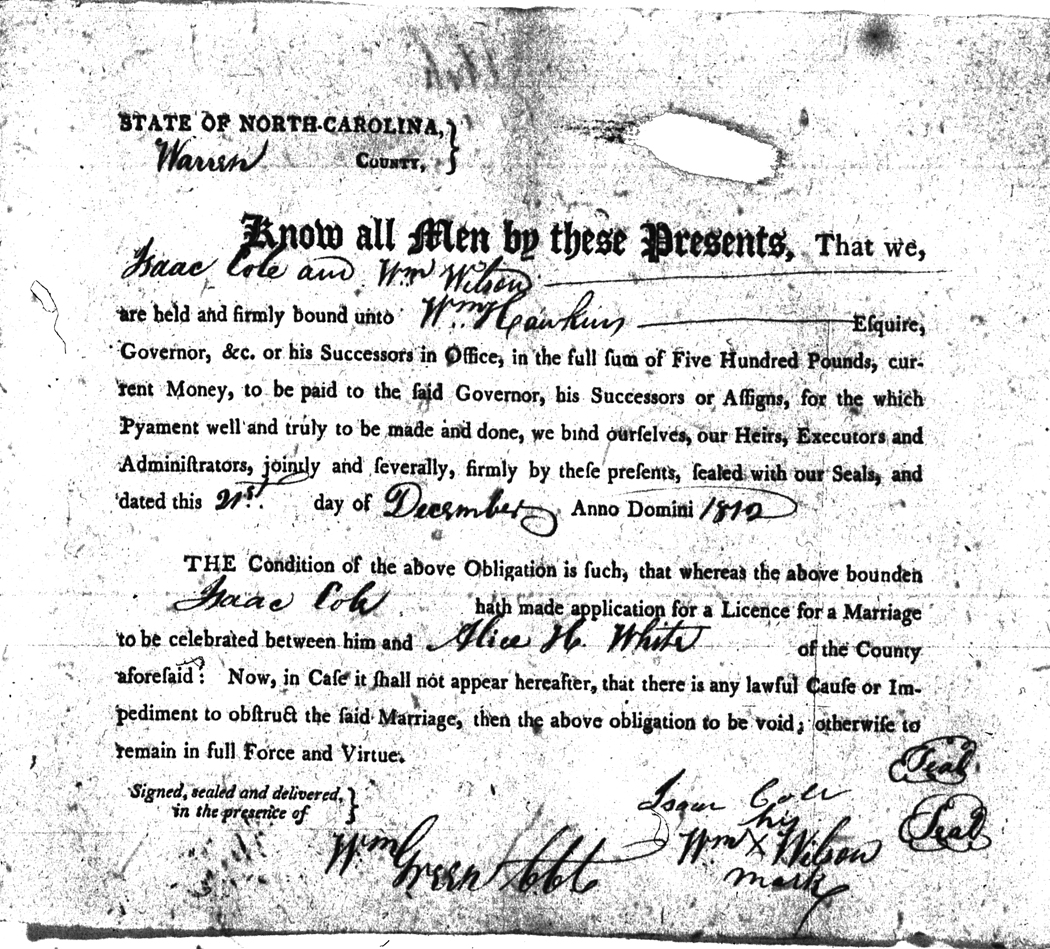 STATE OF NORTH-CAROLINA, }
Warren COUNTY, }
Know all Men by these Presents, That we,
Isaac Cole and Wm Wilson
are held and firmly bound unto Wm Hawkins Eſquire,
Governor, &c. or his Succeſſors in Office, in the full ſum of Five Hundred Pounds, cur-
rent Money, to be paid to the ſaid Governor, his Succeſſors or Aſſigns, for the which
Pyament well and truly to be made and done, we bind ourſelves, our Heirs, Executors and
Adminiſtrators, jointly and ſeverally, firmly by theſe preſents, ſealed with our Seals, and
dated this 21st. day of December Anno Domini 1812
THE Condition of the above Obligation is ſuch, that whereas the above bounden
Isaac Cole hath made application for a Licence for a Marriage
to be celebrated between him and Alice H. White of the County
aforeſaid: Now, in Caſe it ſhall not appear hereafter, that there is any lawful Cauſe or Im-
pediment to obſtruct the ſaid Marriage, then the above obligation to be void; otherwiſe to
remain in full Force and Virtue.
Signed, sealed and delivered, }
in the presence of }
Isaac Cole Seal
his
Wm X Wilson Seal
mark
Wm Green